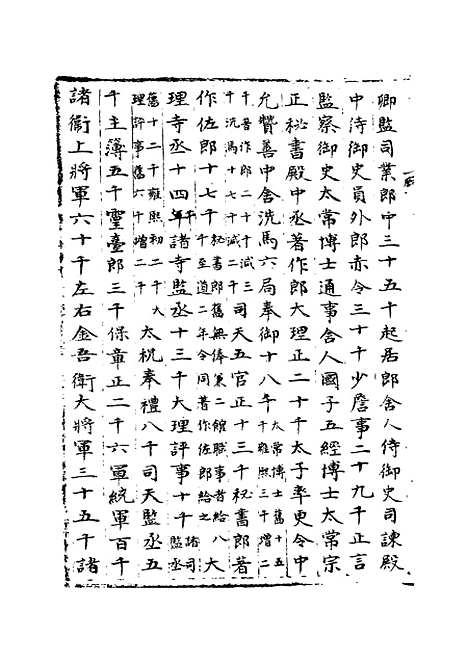 卿監司業郎中三十五千起居郎舍人侍御史司諫殿
中侍御史員外郎赤令三十千少詹事二十九千正言
監察御史太常博士通事舍人國子五經博士太常宗
正秘書殿中丞著作郎大理正二十千太子率更令中
允贊善中舍洗馬六局奉御十八千太常博士舊十五千雍熙三千增二
千著作郎二十千減三千洗馬十七千減二千司天五官正十三千秘書郎著
作佐郎十七千秘書郎舊無俸兼二館職事者給八千至道二年令同著作佐郎給之大
理寺丞十四千諸寺監丞十三千大理評事十千諸司監丞
舊十二千雍熙初二千大理評事舊六千增二千太祝奉禮八千司天監丞五
千主簿五千靈臺郎三千保章正二千六軍統軍百千
諸衛上將軍六十千左右金吾衛大將軍三十五千諸